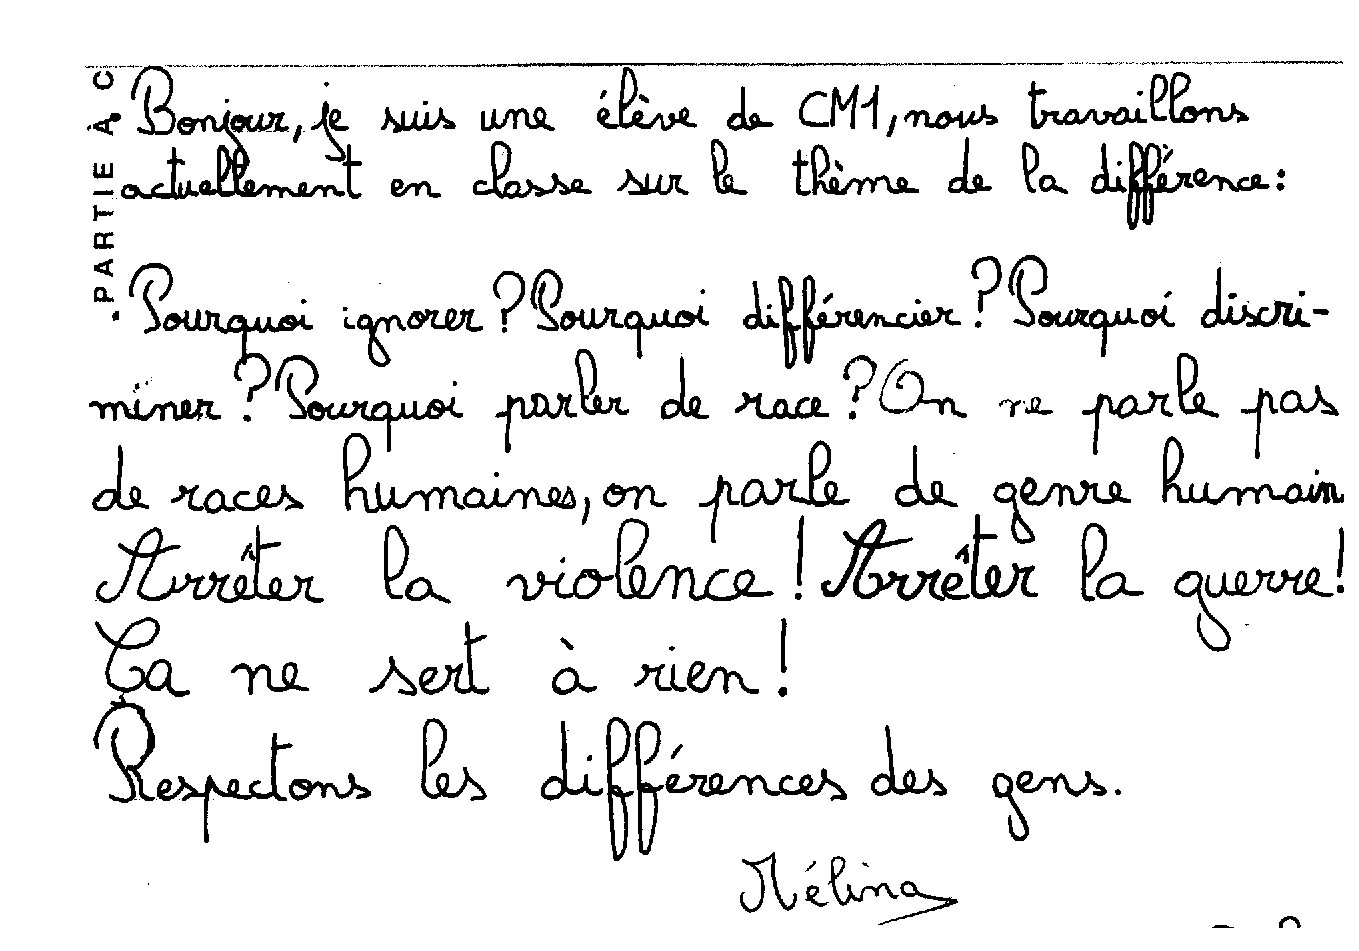 PARTIE À C
Bonjour, je suis une élève de CM1, nous travaillons
actuellement en classe sur le thème de la différence:
Pourquoi ignorer? Pourquoi différencier? Pourquoi discri-
miner? Pourquoi parler de race? On ne parle pas
de races humaines, on parle de genre humain
Arrêter la violence! Arrêter la guerre!
Ça ne sert à rien!
Respectons les différences des gens.
Mélina